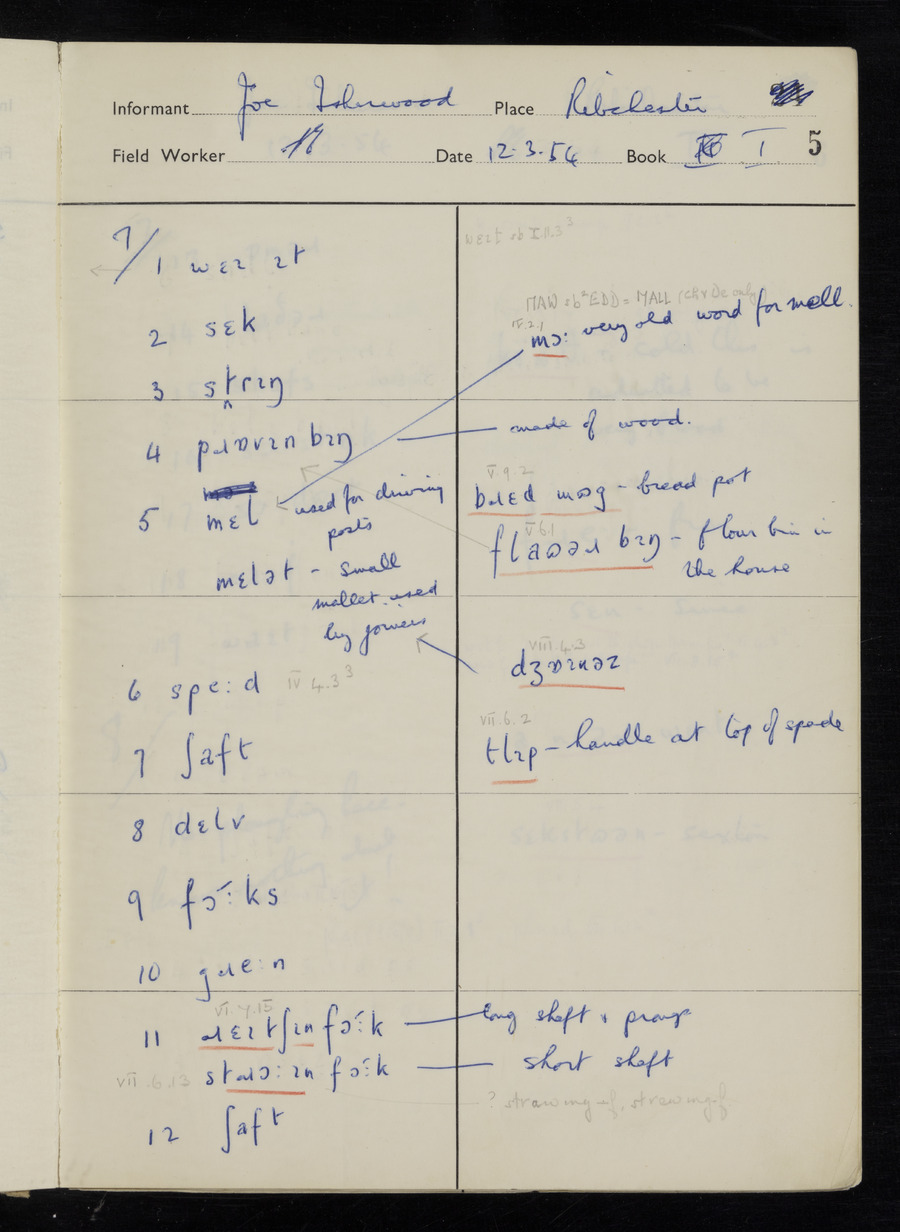 Informant Joe Isherwood Place Ribchester
Field Worker Date 12.3.54 Book I 5
7/1 wɛɪ ɪt
2 sɛk
3 strɪŋ
4 pɹɒvɪn bɪŋ
5 mɛl used for driving
posts
mɛlət - small
mallet used
by joiners
6 spe:d IV 4.3³
7 ʃaft
8 dɛlv
9 fɔ´:ks
10 gɹe:n
VI.7.15
11 ɹɛɪtʃɪn fɔ´:k
VII.6.13 stɹɔ:ɪn fɔ´:k
12 ʃaft
wɛɪt sb II.3³
MAW sb² EDD = MALL (Ch & De only)
IV.2.1
mɔ: very old word for mell.
made of wood.
V.9.2
bɹɛd mɒg - bread pot
V.6.1
flaʊəɹ bɪŋ - flour bin in
the house
VIII.4.3
dʒɒɪnəz
VII.6.2
tlɪp - handle at top of spade
long shaft & prongs
short shaft
? strawing-f, strewing-f